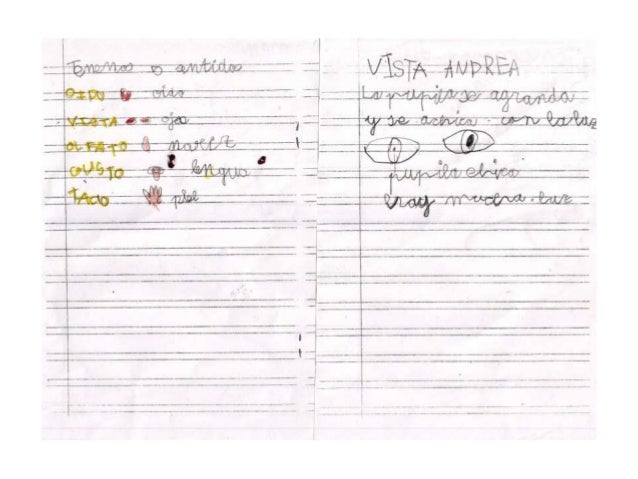 Tenemos 5 sentidos
OIDO oido
VISTA ojo
OLFATO nariz
GUSTO lengua
TACTO piel
VISTA ANDREA
La pupila se agranda
y se achica con la luz
pupila chica
hay mucha luz